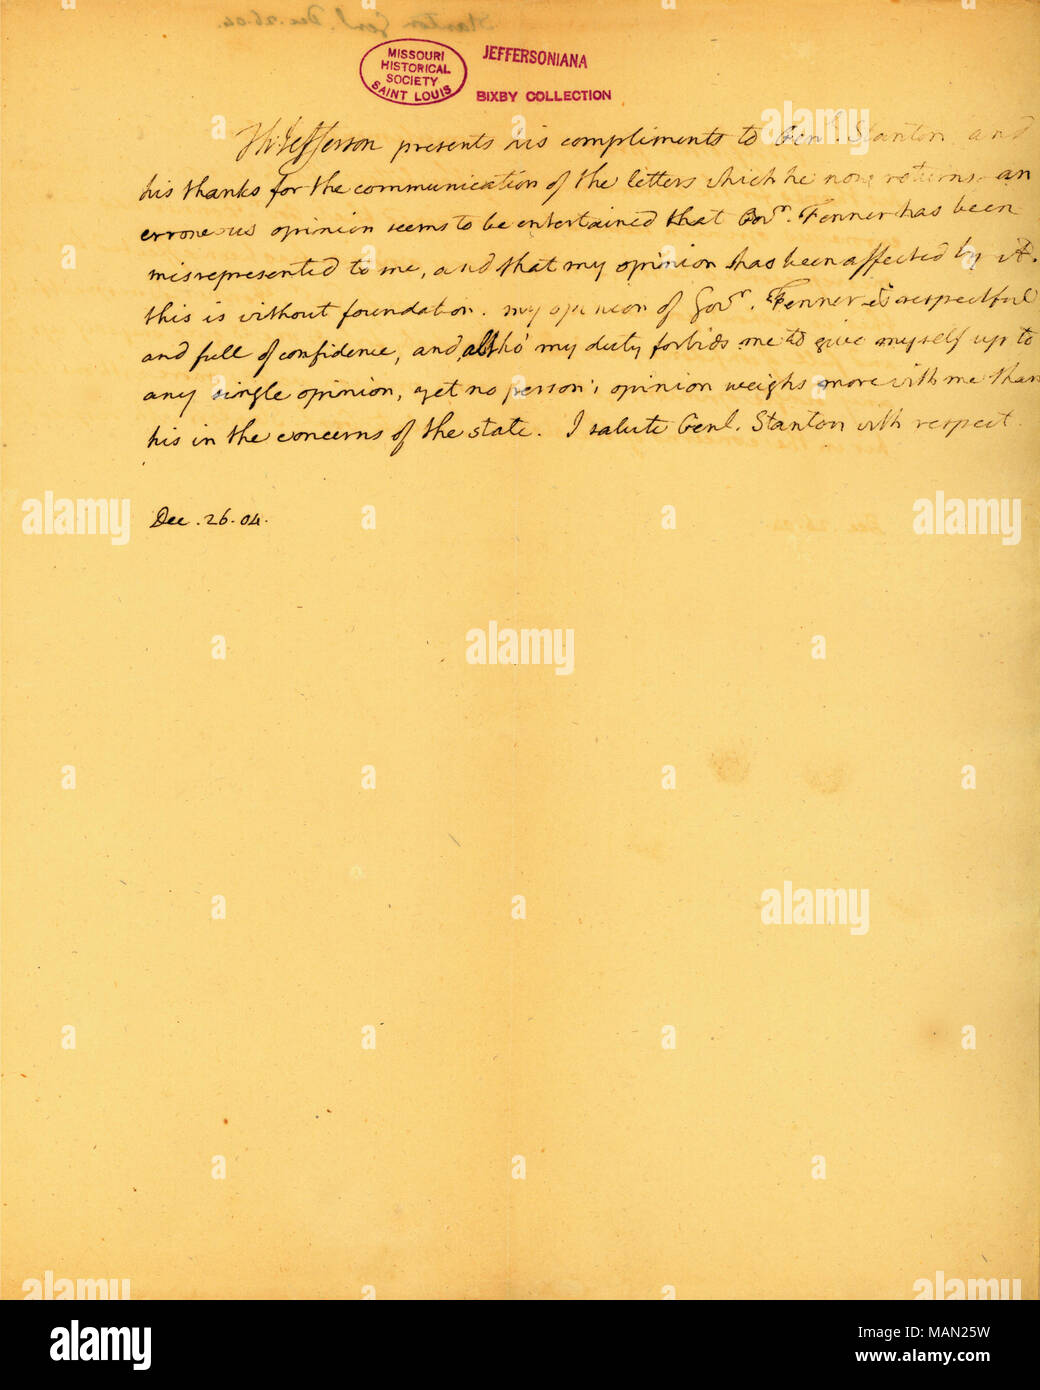 Stanton Genl. Dec. 26. 04.
MISSOURI
HISTORICAL
SOCIETY
SAINT LOUIS
JEFFERSONIANA
BIXBY COLLECTION
Th: Jefferson presents his compliments to Genl. Stanton and
his thanks for the communication of the letters which he now returns. an
erroneous opinion seems to be entertained that Govr. Fenner has been
misrepresented to me, and that my opinion has been affected by it.
this is without foundation. my opinion of Govr. Fenner is respectful
and full of confidence, and altho' my duty forbids me to give myself up to
any single opinion, yet no person's opinion weighs more with me than
his in the concerns of the state. I salute Genl. Stanton with respect.
Dec. 26. 04.
alamy
Image ID: MAN25W
www.alamy.com